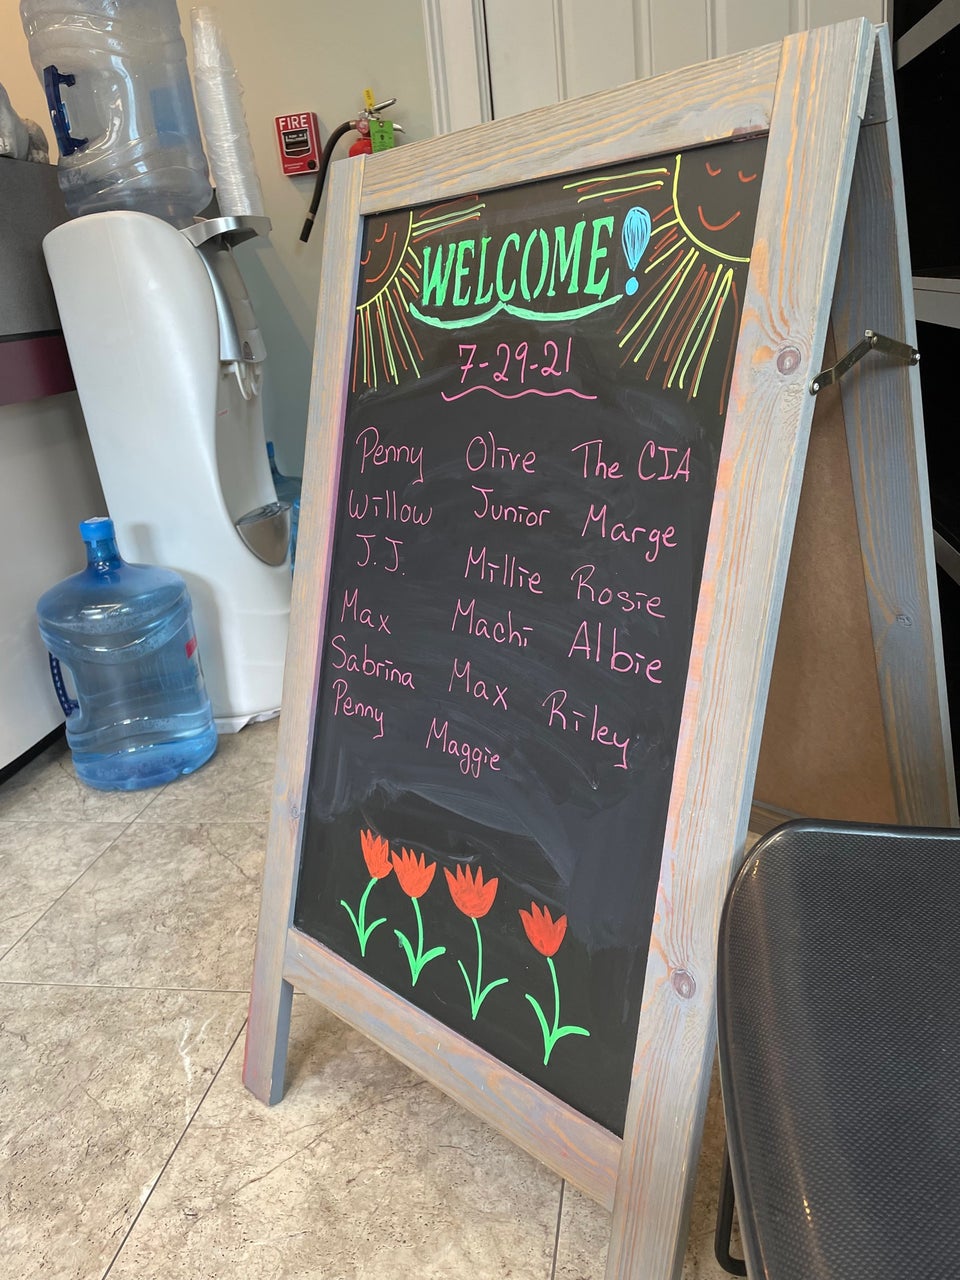 FIRE
WELCOME!
7-29-21
Penny Olive The CIA
Willow Junior Marge
J.J. Millie Rosie
Max Machi Albie
Sabrina Max Riley
Penny Maggie